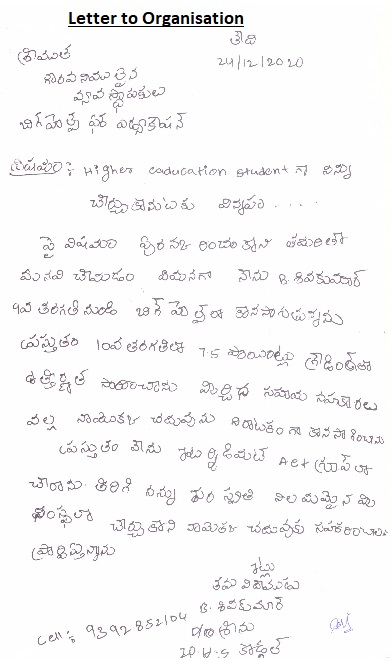 Letter to Organisation
తేది
24/12/2020
శ్రీయుత
గౌరవనీయులైన
వ్యవస్థాపకులు
బిగ్ హెల్ప్ ఫర్ ఎడ్యుకేషన్
విషయం : Higher education student గా నన్ను
చేర్చుకొనుటకు విన్నపం . . . .
పై విషయం పురస్కరించుకొని తమరితో
మనవి చేయడం ఏమనగా నేను B. శివకుమార్
9వ తరగతి నుండి బిగ్ హెల్ప్ లో కొనసాగుతున్నను
ప్రస్తుతం 10వ తరగతిలో 7.5 పాయింట్లు గ్రేడింగ్‌తో
ఉత్తీర్ణత సాధించాను మీరిచ్చిన సహాయ సహకారాలు
వల్ల నాయొక్క చదువును నిరాటకం గా కొనసాగించాను
ప్రస్తుతం నేను ఇంటర్మీడియట్ AET గ్రూప్ లో
చేరాను. తిరిగి నన్ను మీ
సంస్థలో చేర్చుకొని నాయొక్క చదువుకు సహకరించాలని
ప్రార్థిస్తున్నాను
ఇట్లు
తమ విధేయుడు
B. శివకుమార్
Cell : 9392852104
శ్రీను
Z.P.H.S